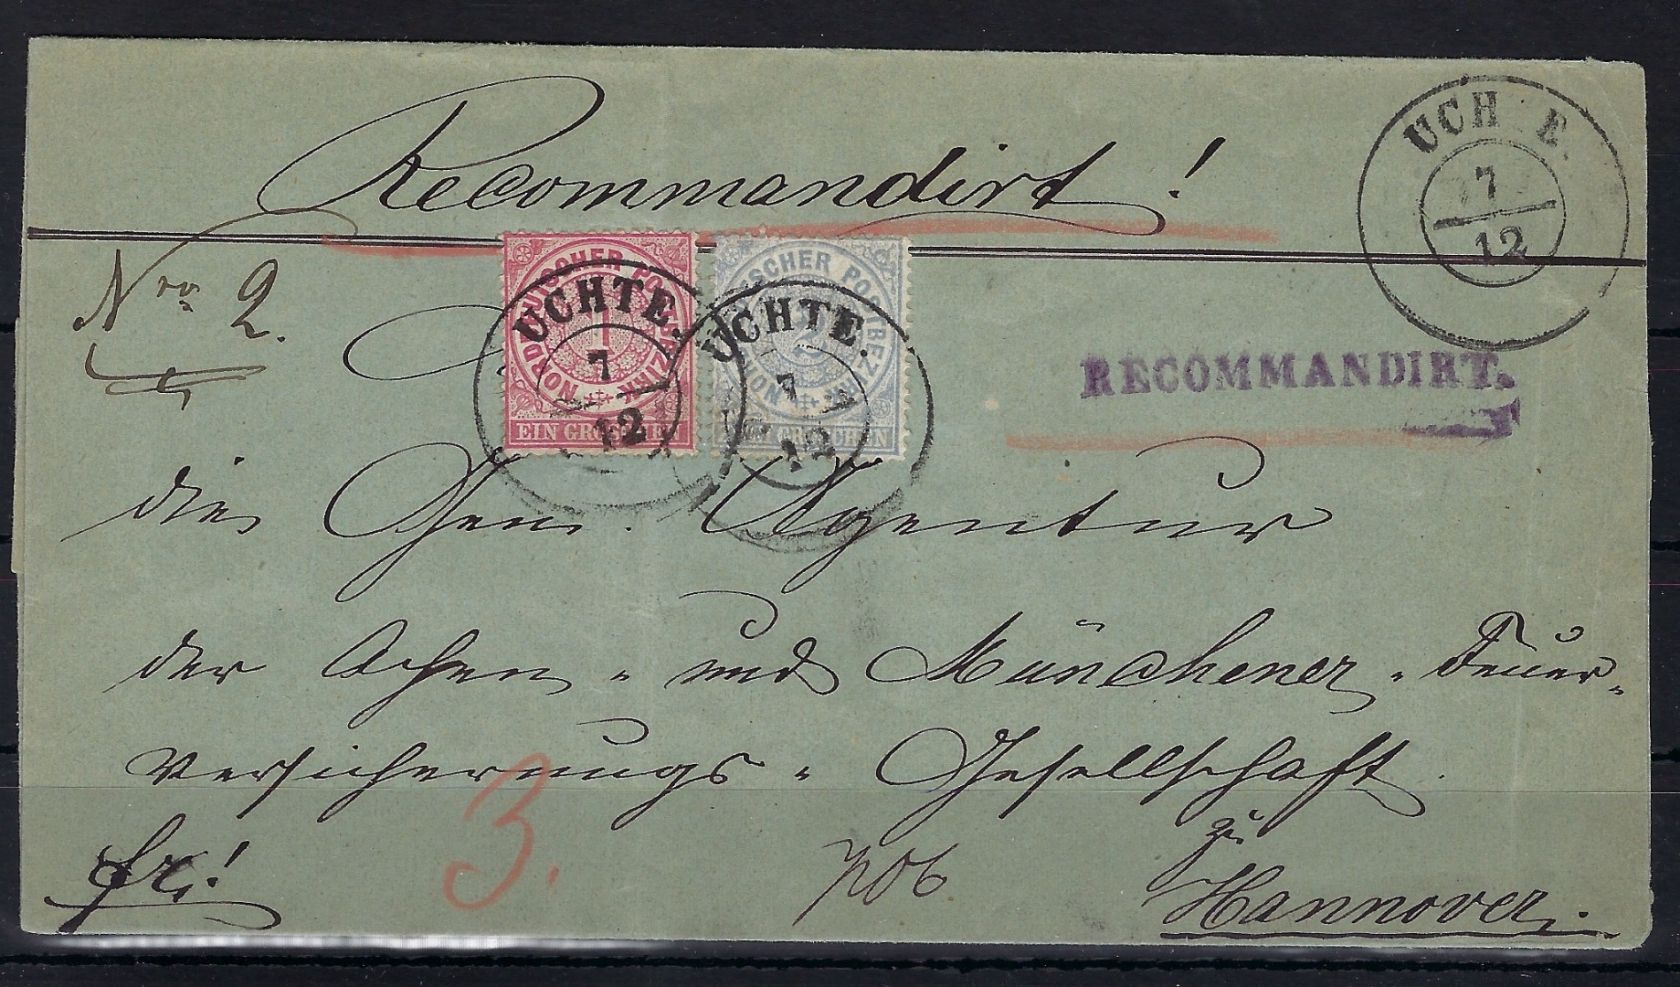 Recommandirt!
UCH E.
7
12
Nro. 2.
NORDDEUTSCHER POSTBEZIRK
1
EIN GROSCHEN
UCHTE.
7
12
NORDDEUTSCHER POSTBEZIRK
2
ZWEI GROSCHEN
UCHTE.
7
12
RECOMMANDIRT.
die Gen. Agentur
der Achen- und Münchener-Feuer-
versicherungs-Gesellschaft
zu
fr.!
3.
Hannover.